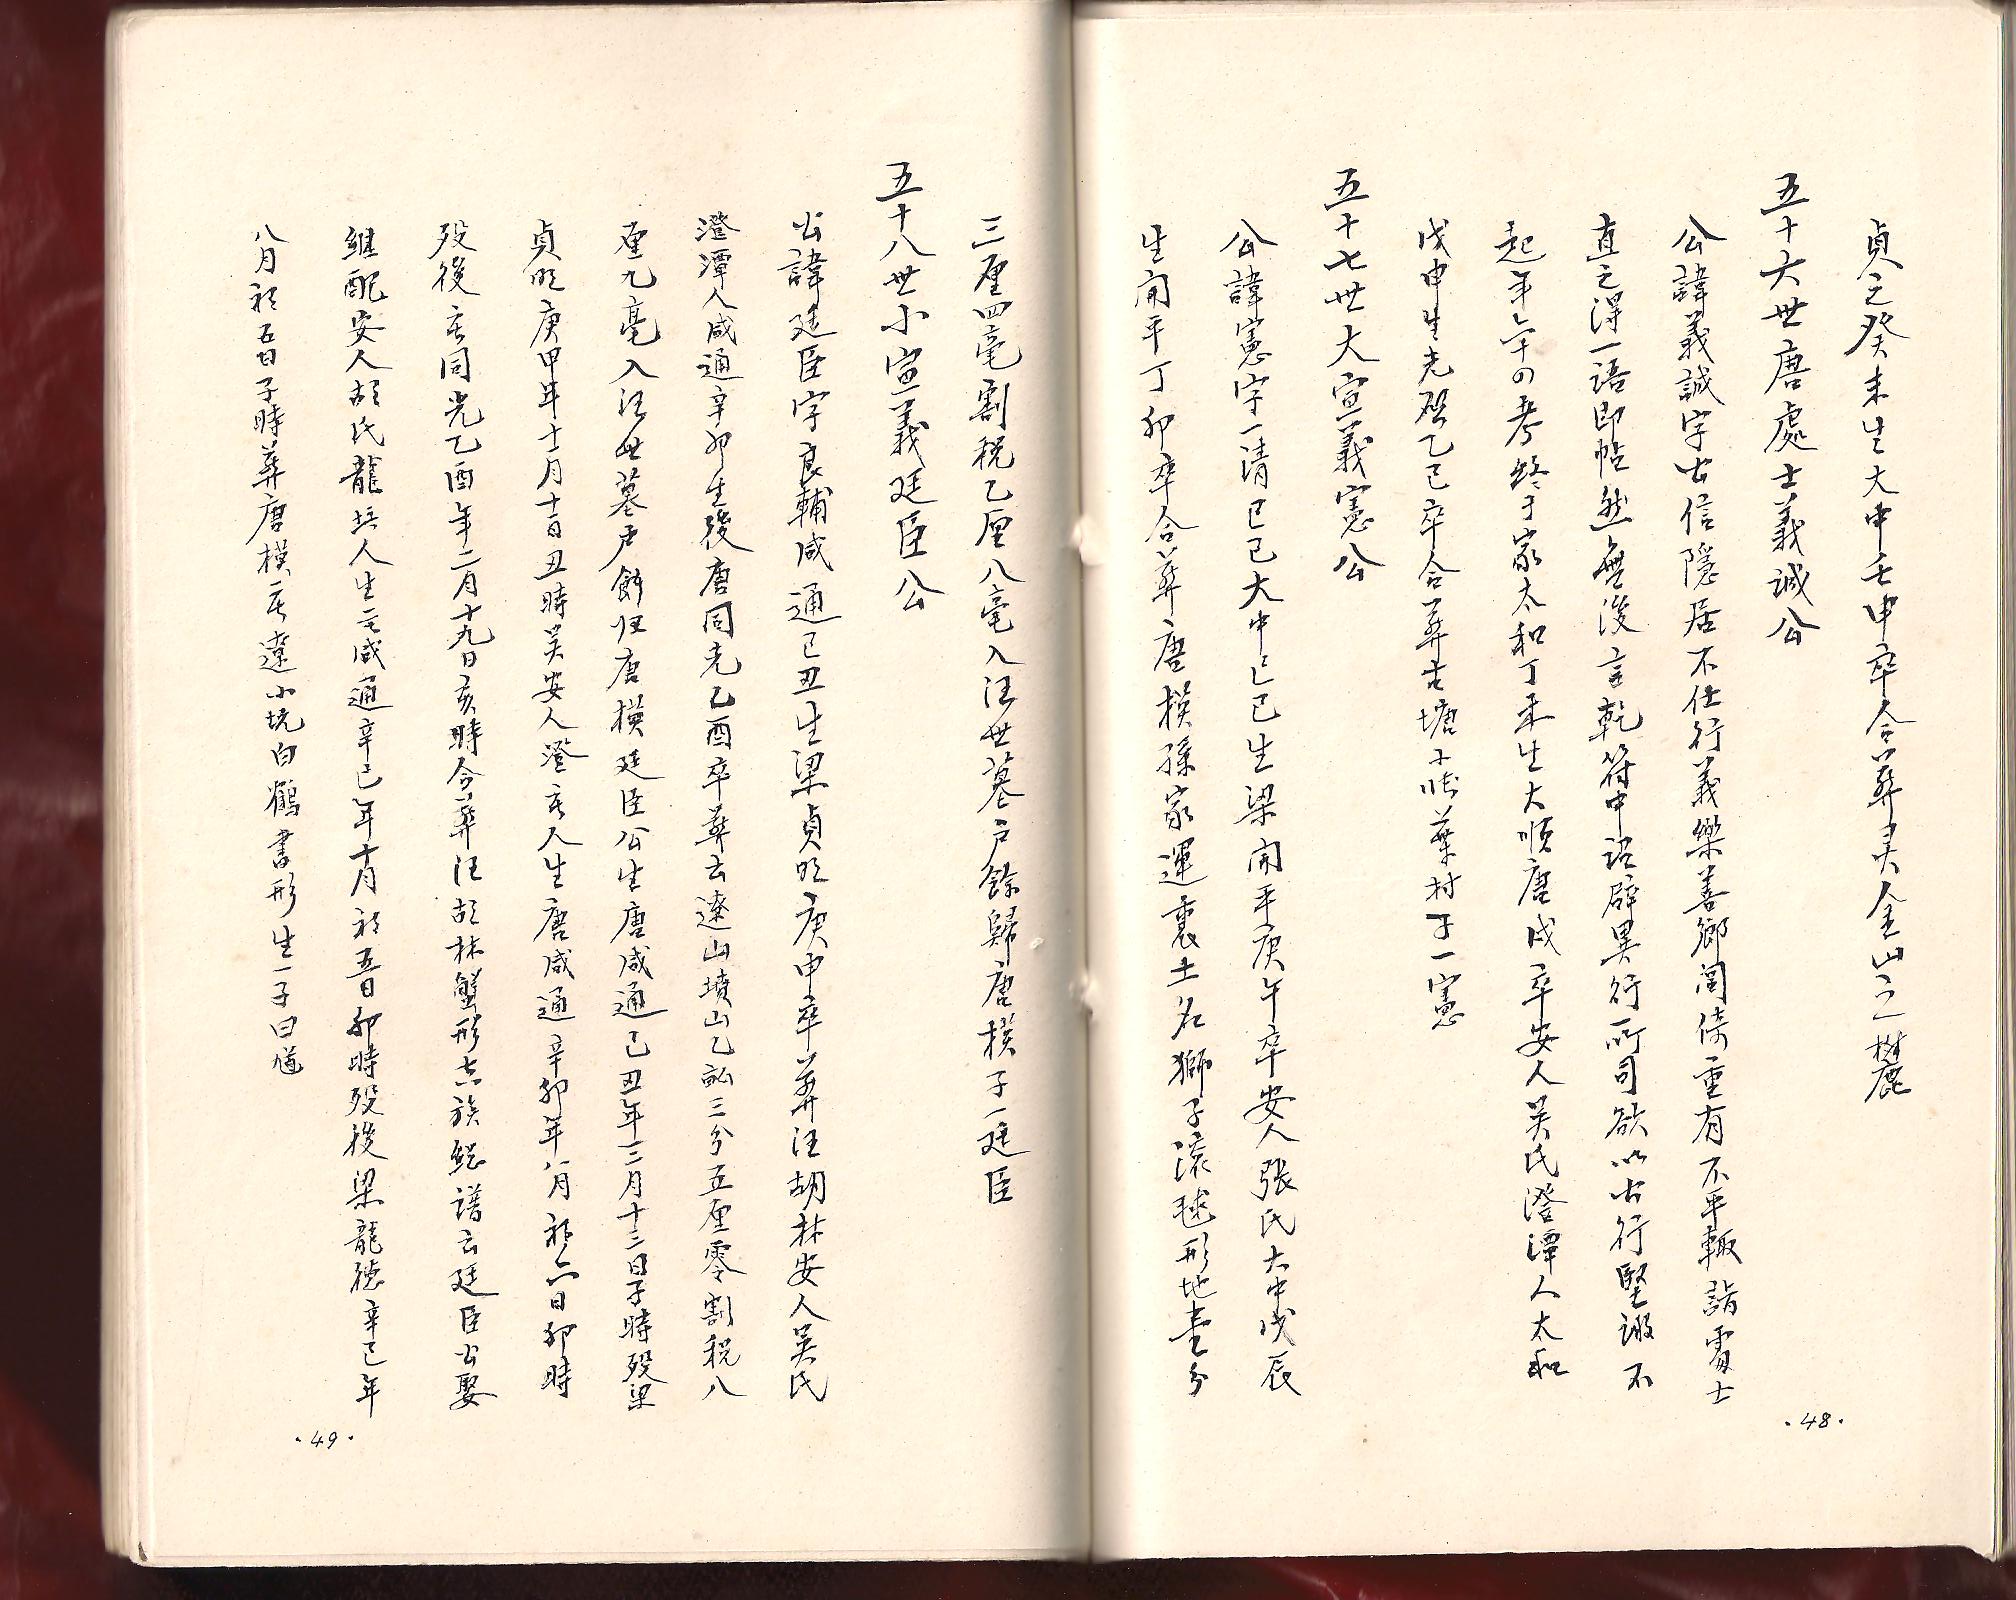 貞元癸未生大中壬申卒合葬灵金山之麓
五十六世唐處士義誠公
公諱義誠字古信隱居不仕行義樂善鄉閭倚重有不平輙詣賓士
直之得一語即帖然無後言乾符中詔辟異行所司欲以古行堅辭不
起年六十四考終于家太和丁未生大順唐戌卒安人吴氏澄潭人太和
戊申生光啓乙巳卒合葬古塘葉村子一憲
五十七世大宣義憲公
公諱憲字一清己巳大中己巳生梁開平庚午卒安人張氏大中戊辰
生開平丁卯卒合葬唐模孫家運裏土名獅子滚毬形地壹分
三厘四毫割税乙厘八毫入汪世墓户餘歸唐模子一廷臣
五十八世小宣義廷臣公
公諱廷臣字良輔咸通己丑生梁貞明庚申卒葬汪胡林安人吴氏
澄潭人咸通辛卯生後唐同光乙酉卒葬古遼山墳山乙畝三分五厘零割税八
厘九毫入汪世墓户餘归唐模廷臣公生唐咸通己丑年三月十三日子時殁梁
貞明庚申年十月十一日丑時吴安人澄家人生唐咸通辛卯年八月初六日卯時
殁後唐同光乙酉年二月十九日亥時合葬汪胡林蟹形吉族總譜云廷臣公娶
継配安人胡氏龍塘人生元咸通辛巳年十月初五日卯時殁後梁龍德辛巳年
八月初五日子時葬唐模古遼小坑白鶴書形生一子曰馗
·48·
·49·